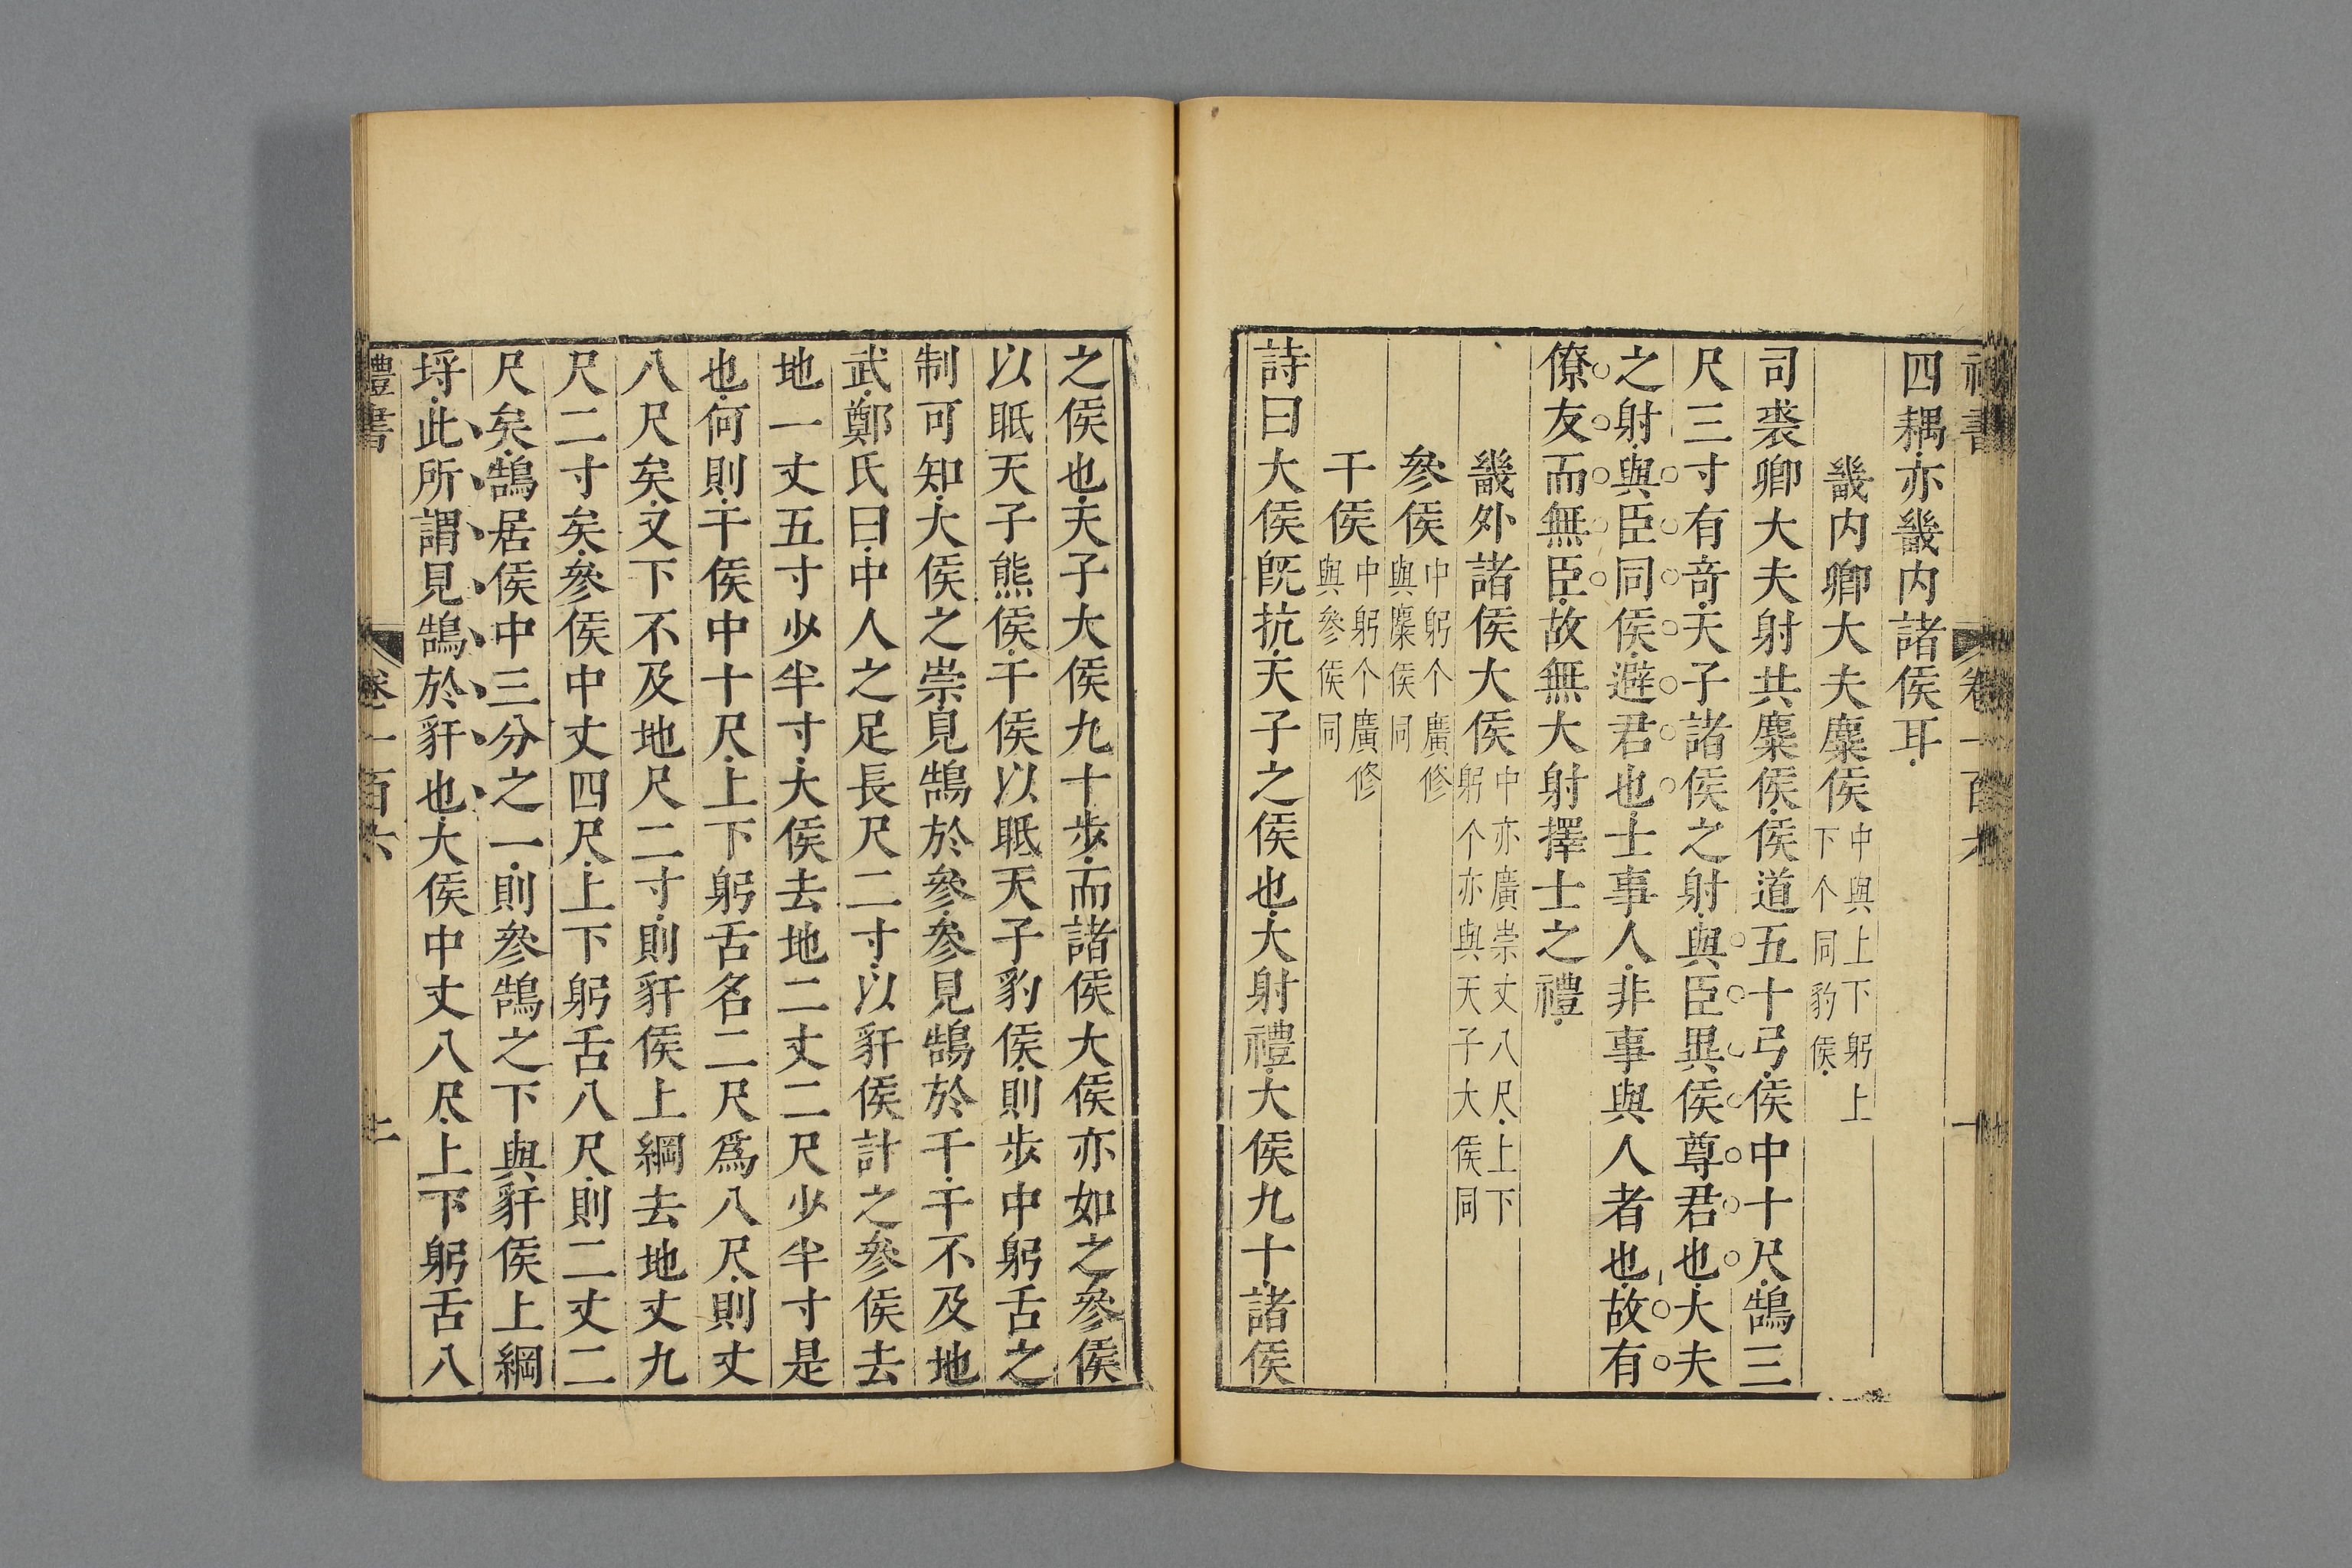 四耦亦畿内諸侯耳
畿内卿大夫麋侯中與上下躬上下个同豹侯
司裘卿大夫射共麋侯侯道五十弓侯中十尺鵠三
尺三寸有竒天子諸侯之射與臣異侯尊君也大夫
之射與臣同侯避君也士事人非事與人者也故有
僚友而無臣故無大射擇士之禮
畿外諸侯大侯中亦廣崇丈八尺上下躬个亦與天子大侯同
參侯中躬个廣修與麋侯同
干侯中躬个廣修與參侯同
詩曰大侯旣抗天子之侯也大射禮大侯九十諸侯
之侯也天子大侯九十步而諸侯大侯亦如之參侯
以眡天子熊侯干侯以眡天子豹侯則步中躬舌之
制可知大侯之崇見鵠於參參見鵠於干干不及地
武鄭氏曰中人之足長尺二寸以豻侯計之參侯去
地一丈五寸少半寸大侯去地二丈二尺少半寸是
也何則干侯中十尺上下躬舌名二尺爲八尺則丈
八尺矣又下不及地尺二寸則豻侯上綱去地丈九
尺二寸矣參侯中丈四尺上下躬舌八尺則二丈二
尺矣鵠居侯中三分之一則參鵠之下與豻侯上綱
埒此所謂見鵠於豻也大侯中丈八尺上下躬舌八
禮書 卷一百六